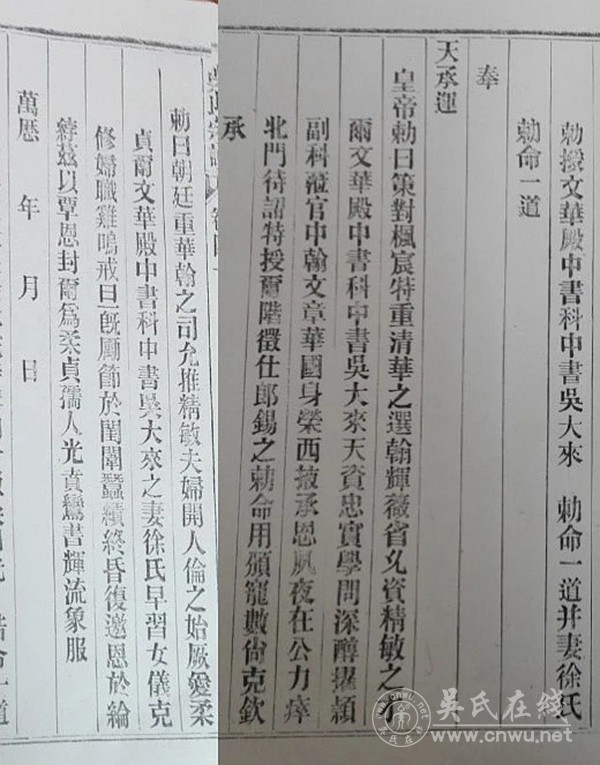 勅授文華殿中書科中書吳大來 勅命一道并妻徐氏
勅命一道
奉
天承運
皇帝勅曰策對楓宸特重清華之選翰輝薇省尤資精敏之才
爾文華殿中書科中書吳大來天資忠實學問深醇擢穎
副科蒞官中翰文章華國身榮西掖承恩夙夜在公力瘁
北門待詔特授爾階徵仕郎錫之勅命用頒寵數尚克欽
承
勅曰朝廷重華翰之司允推精敏夫婦開人倫之始厥愛柔
貞爾文華殿中書科中書吳大來之妻徐氏早習女儀克
修婦職雞鳴戒旦既勵節於閨闈蠶績終昏復邀恩於綸
綍茲以覃恩封爾為柔貞孺人光賁鸞書輝流象服
萬歷 年 月 日
誥命一道
吳氏在线
www.cnwu.net